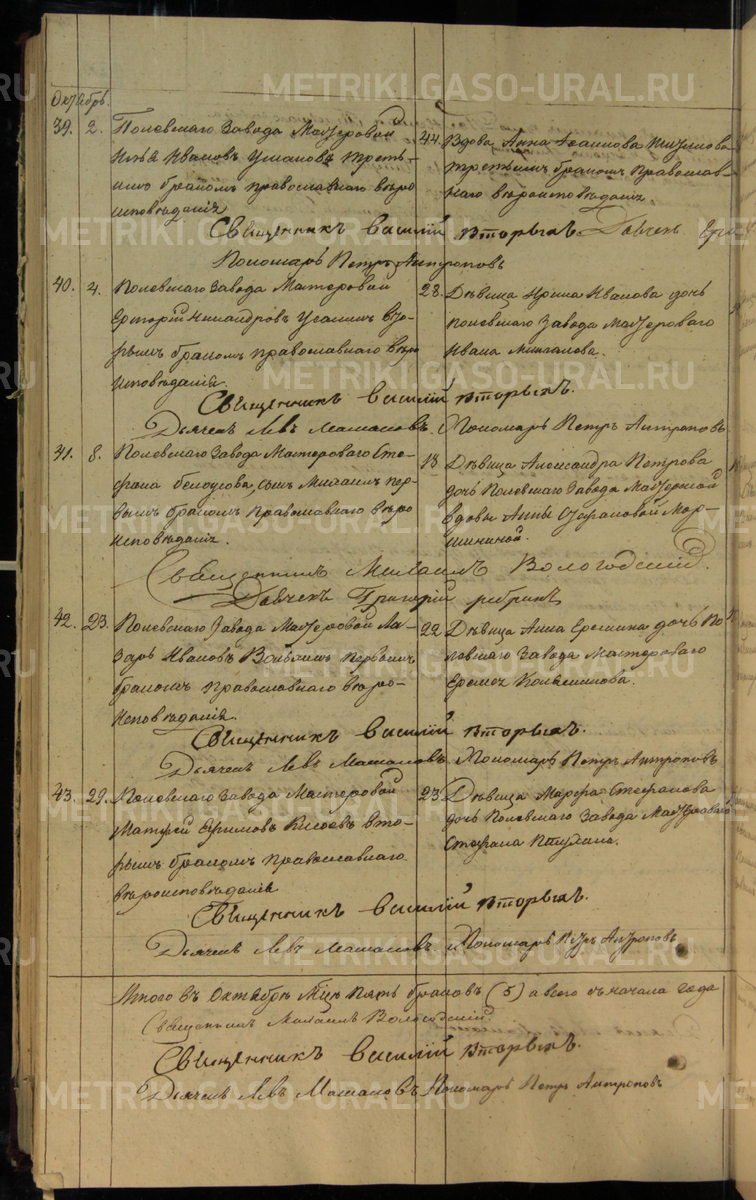 METRIKI.GASO-URAL.RU
Октябрь.
39. 2. Полевскаго Завода Мастеровой
Илья Ивановъ третьимъ бракомъ православнаго вѣро
исповѣданія
44. Вдова Анна
третьимъ бракомъ Православ-
наго вѣроисповѣданія.
Священникъ Василій Вторыхъ. Дьячекъ
Пономарь Петръ Антроповъ
40. 4. Полевскаго Завода Мастеровой
Никандровъ вто-
рымъ бракомъ православнаго вѣро
исповѣданія
28. Дѣвица Ирина Иванова дочь
Полевскаго Завода Мастероваго
Ивана
Священникъ Василій Вторыхъ.
Дьячекъ Левъ Пономарь Петръ Антроповъ
41. 8. Полевскаго Завода Мастероваго Сте-
фана Белоусова, сынъ Михаилъ пер-
вымъ бракомъ Православнаго вѣро
исповѣданія.
18. Дѣвица Александра Петрова
дочь Полевскаго Завода Мастерской
вдовы Анны Стефановой Мор-
шининой.
Священникъ Михаилъ Вологодскій.
Дьячекъ Григорій
42. 23. Полевскаго Завода Мастеровой Ла-
зарь Ивановъ первымъ
бракомъ православнаго вѣро-
исповѣданія.
22. Дѣвица Анна Еремина дочь По
левскаго Завода Мастероваго
Еремея
Священникъ Василій Вторыхъ.
Дьячекъ Левъ Пономарь Петръ Антроповъ
43. 29. Полевскаго Завода Мастеровой
Матфей Ефимовъ Кисоевъ вто-
рымъ бракомъ Православнаго
вѣроисповѣданія
23. Дѣвица Марфа Стефанова
дочь Полевскаго Завода Мастероваго
Стефана
Священникъ Василій Вторыхъ.
Дьячекъ Левъ Пономарь Петръ Антроповъ
Итого въ Октябрѣ Мцѣ Пять браковъ (5) а всего съ начала года
Священникъ Михаилъ Вологодскій
Священникъ Василій Вторыхъ.
Дьячекъ Левъ Пономарь Петръ Антроповъ